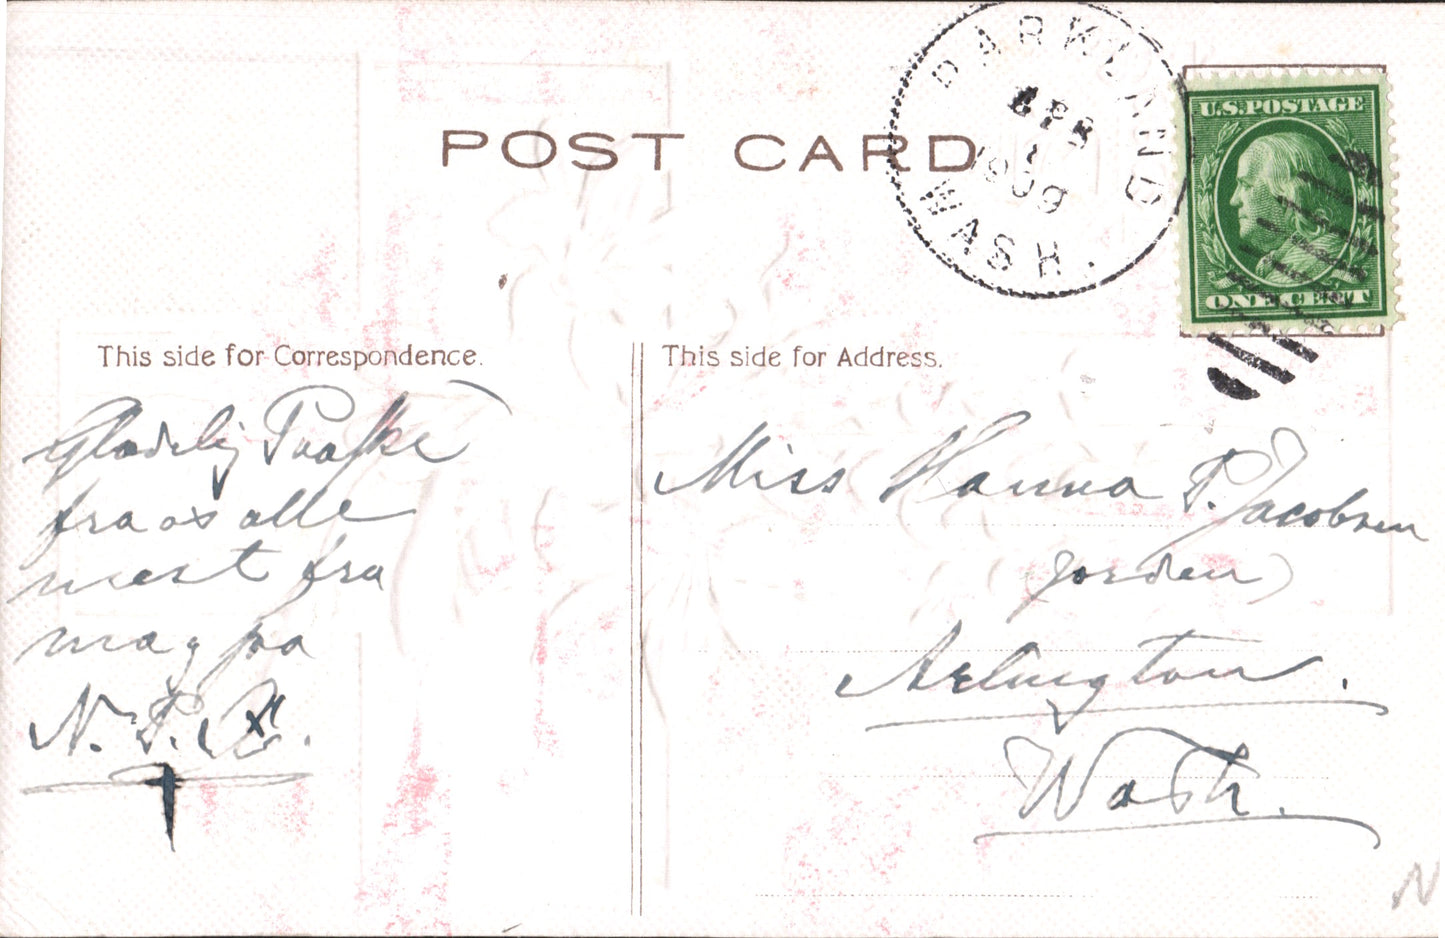 POST CARD
PARKLAND
APR
1
1909
WASH.
U.S. POSTAGE
ONE CENT
This side for Correspondence.
This side for Address.
Gladelig Paaske
fra os alle
mest fra
mag paa
N. P.
Miss Hanna P. Jacobsen
(Jorden)
Arlington.
Wash.
N